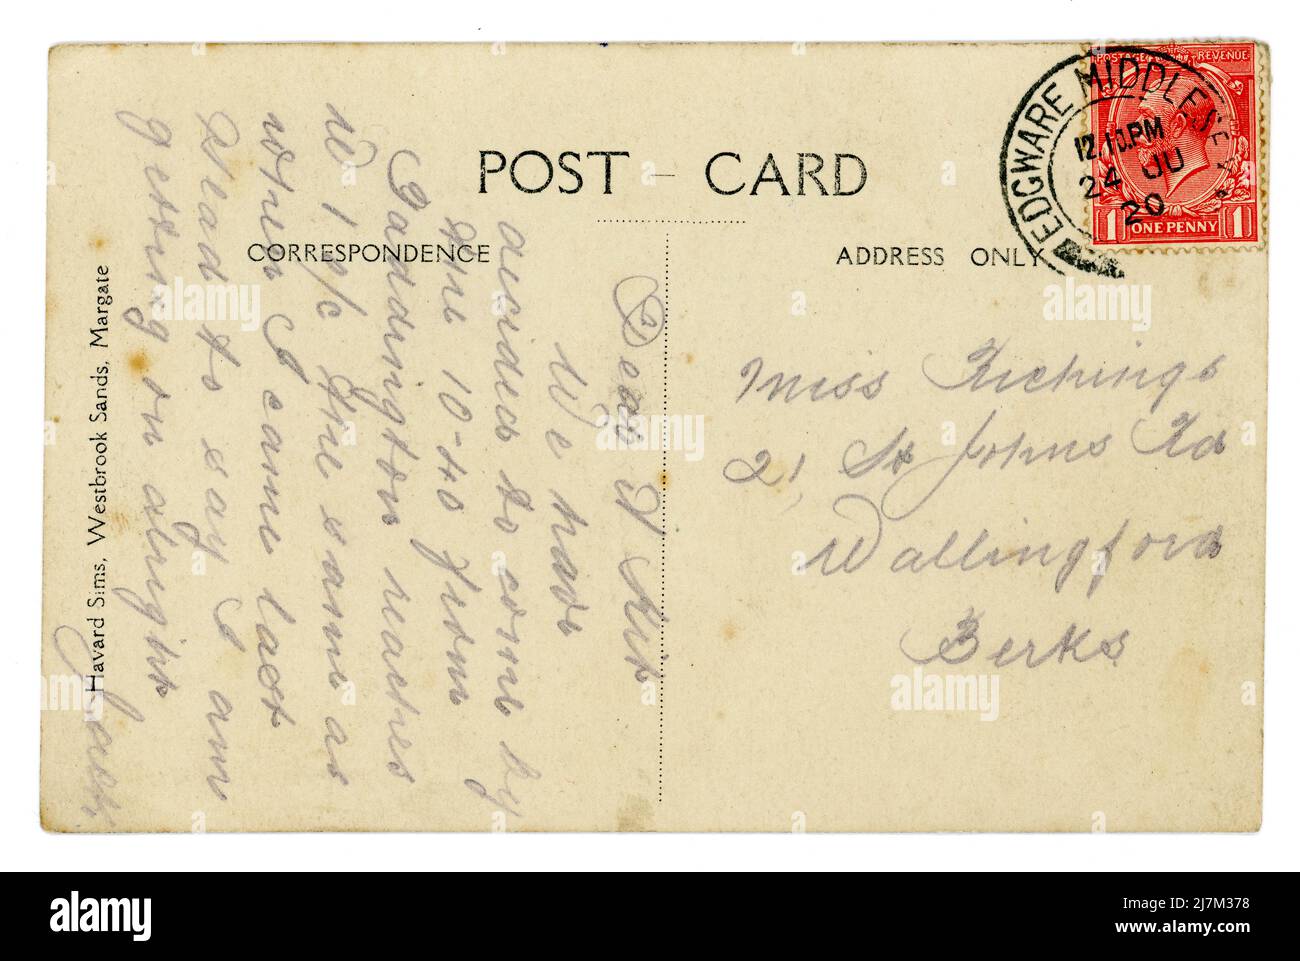 POST CARD
CORRESPONDENCE
ADDRESS ONLY
POSTAGE REVENUE
1 1
ONE PENNY
EDGWARE MIDDLESEX
12.10.PM
24 JU
20
Miss Richings
21 St Johns Rd
Wallingford
Berks
Dear
We have
decided to come by
the 10-40 from
Paddington reaches
W 1 o/c the same as
when I came last
Glad to say I am
getting on alright
Havard Sims, Westbrook Sands, Margate
alamy
Image ID: 2J7M378
www.alamy.com